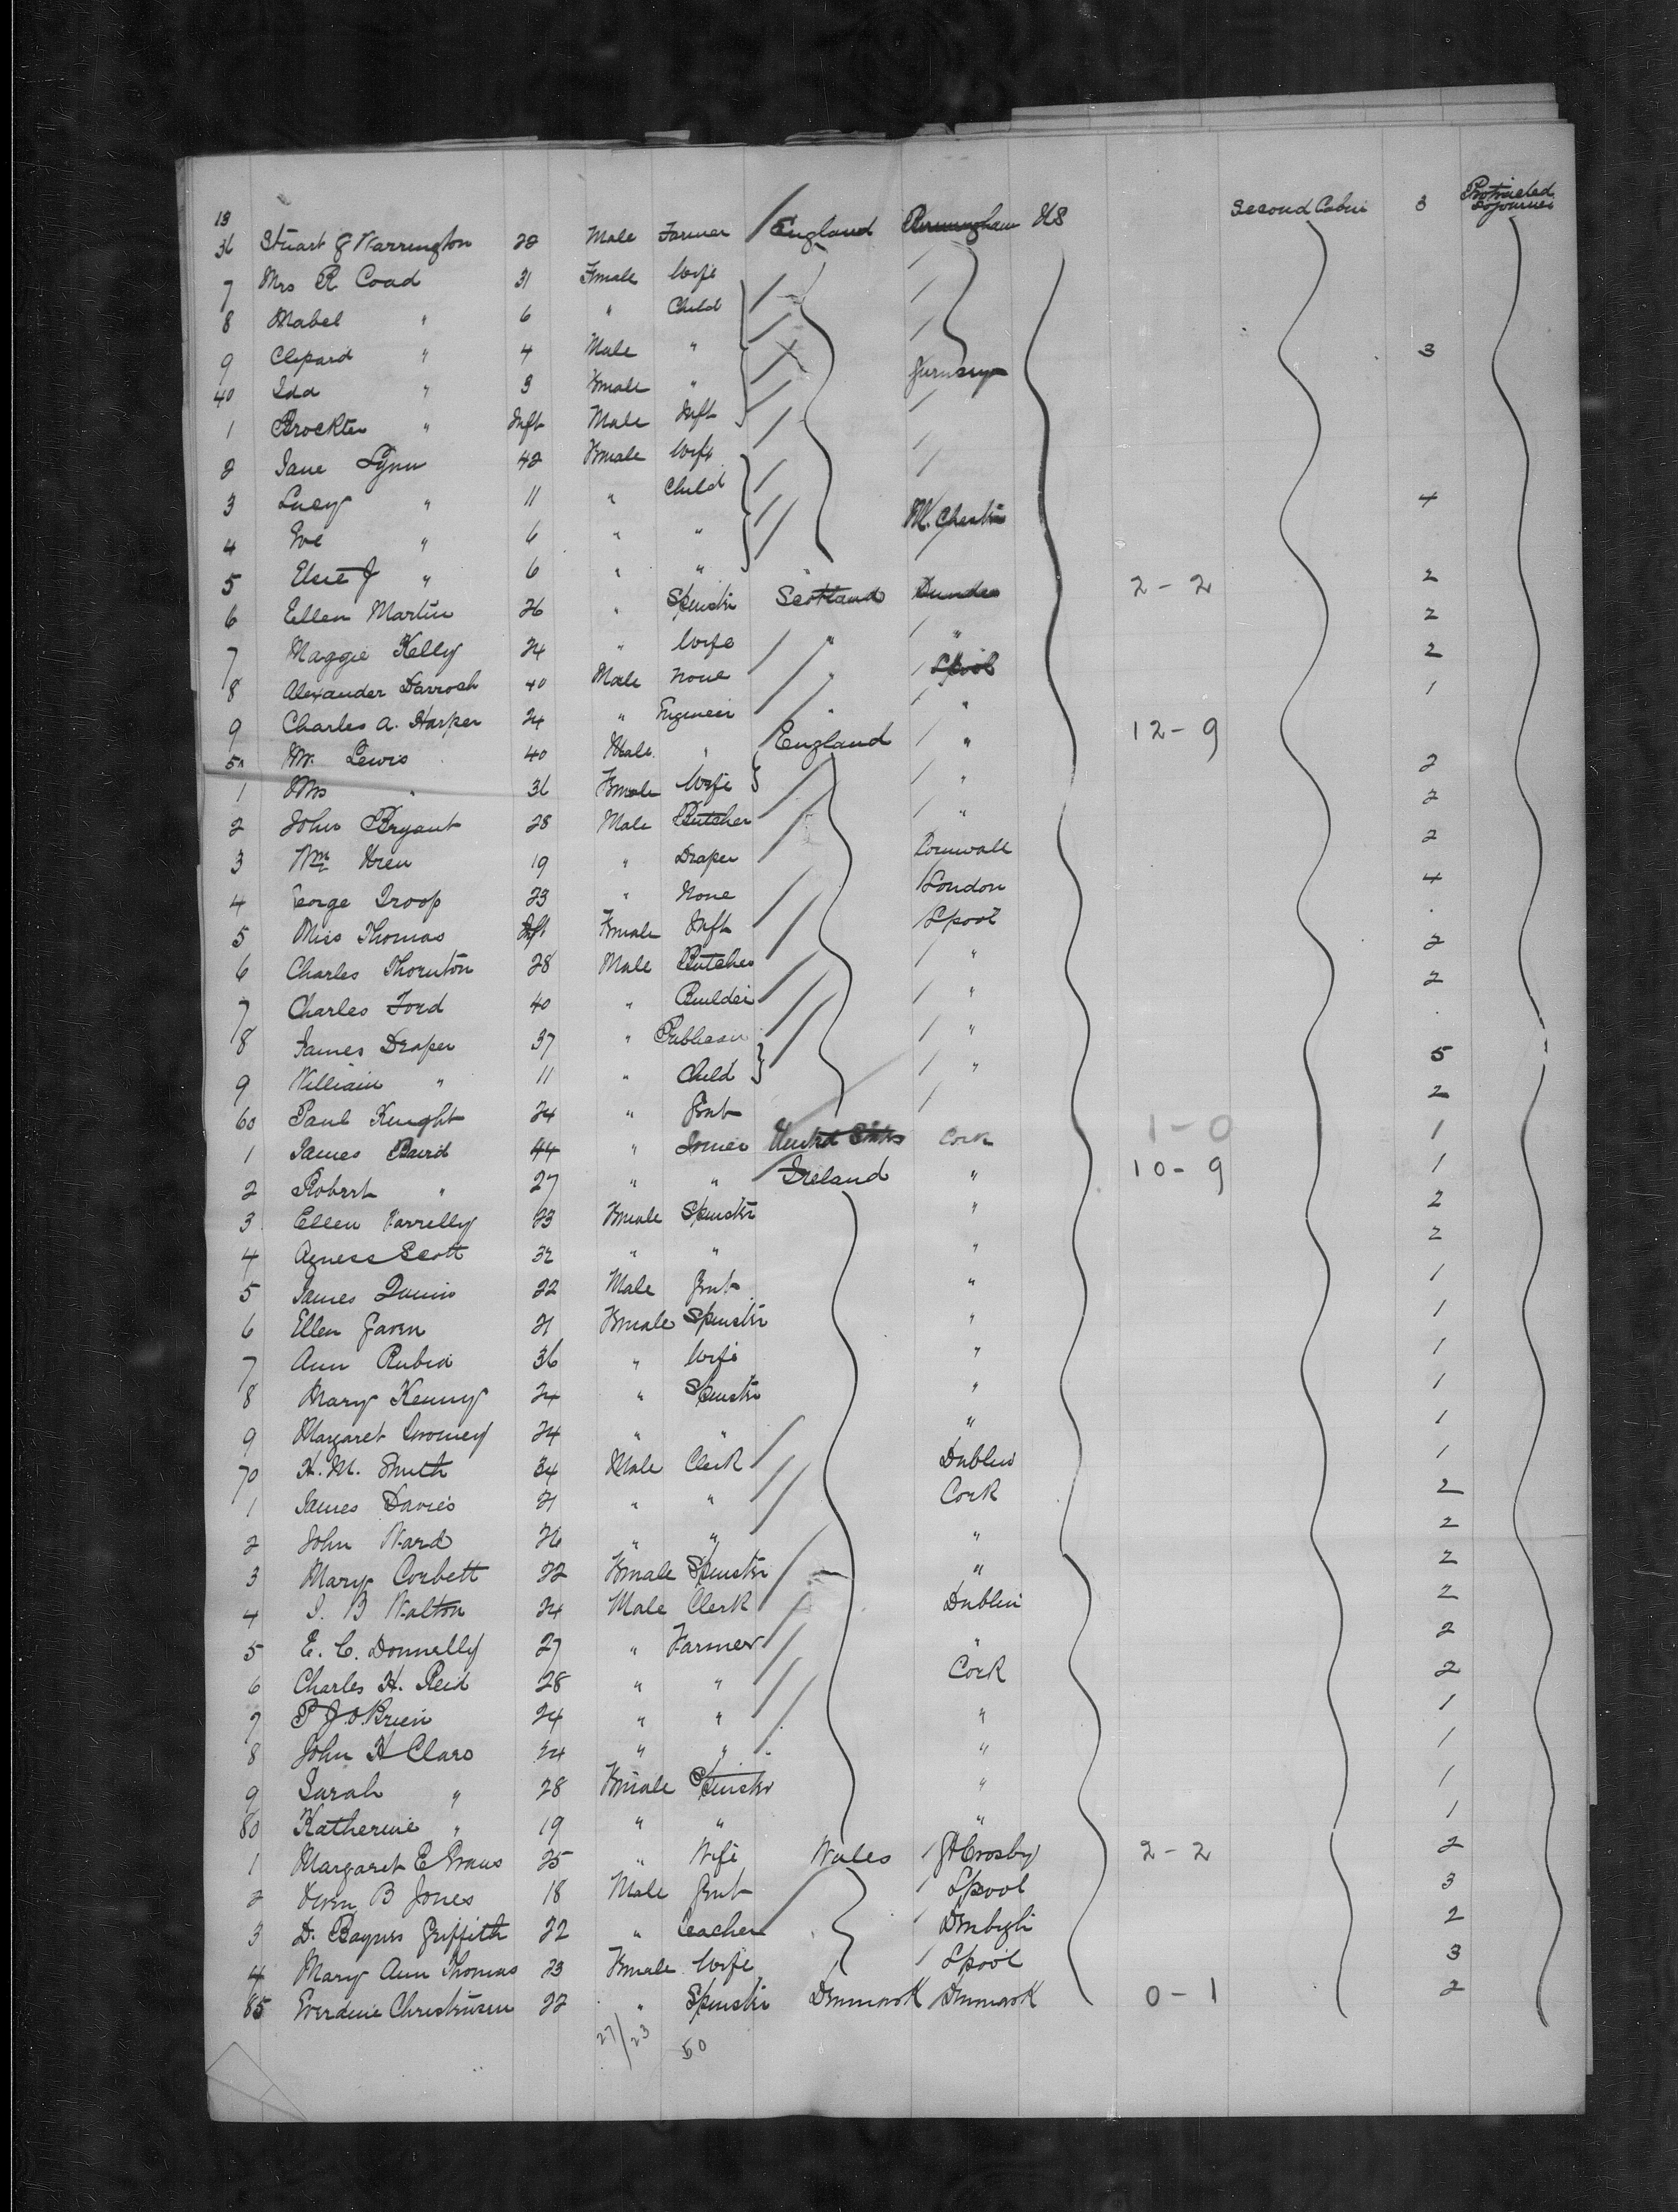 13 Second Cabin 3 Protracted Sojourner
36 Stuart J Warrington 22 Male Farmer England Birmingham US
7 Mrs R Coad 31 Female Wife
8 Mabel " 6 " Child
9 Clifard " 4 Male " 3
40 Ida " 3 Female " Guernsey
1 Brockten " Inft Male Inft
2 Jane Lynn 42 Female Wife
3 Lucy " 11 " Child 4
4 " 6 " " M. Chester
5 Elsie J " 6 " "
6 Ellen Martin 26 " Spinster Scotland Dundee 2-2 2
7 Maggie Kelly 24 " Wife " " 2
8 Alexander Darroch 40 Male None " Lpool 2
9 Charles A. Harper 24 " Engineer " " 1
50 Mr. Lewis 40 Male " England " 12-9
1 Mrs " 36 Female Wife " 2
2 John Bryant 28 Male Butcher " 2
3 Wm 19 " Draper Cornwall 2
4 George Troop 23 " None London 4
5 Miss Thomas Inft Female Inft Lpool
6 Charles Thornton 28 Male Butcher " 2
7 Charles Ford 40 " Builder " 2
8 James Draper 37 " Publican "
9 William " 11 " Child " 5
60 Paul Knight 24 " Gent 2
1 James Baird 44 " Joiner United States Cork 1-0 1
2 Robert " 27 " " Ireland " 10-9 1
3 Ellen Farrelly 23 Female Spinster " 2
4 Agness Scott 32 " " " 2
5 James Quinn 22 Male Gent " 1
6 Ellen Gaven 21 Female Spinster " 1
7 Ann Rubid 36 " Wife " 1
8 Mary Kenny 24 " Spinster " 1
9 Margaret Twomey 24 " " " 1
70 H. M. Smith 34 Male Clerk Dublin 1
1 James Davies 21 " " Cork 2
2 John Ward 26 " " " 2
3 Mary Corbett 22 Female Spinster " 2
4 J. B Walton 24 Male Clerk Dublin 2
5 E. C. Donnelly 27 " Farmer " 2
6 Charles H. Reid 28 " " Cork 2
7 P J O'Brien 24 " " " 1
8 John H Claro 24 " " " 1
9 Sarah " 28 Female Spinster " 1
80 Katherine " 19 " " " 1
1 Margaret E Evans 25 " Wife Wales Gt Crosby 2-2 2
2 Owen B Jones 18 Male Gent Lpool 3
3 D. Baynes Griffith 22 " Teacher Denbigh 2
4 Mary Ann Thomas 23 Female Wife Lpool 3
85 Everdine Christensen 22 " Spinster Denmark Denmark 0-1 2
27/23 50